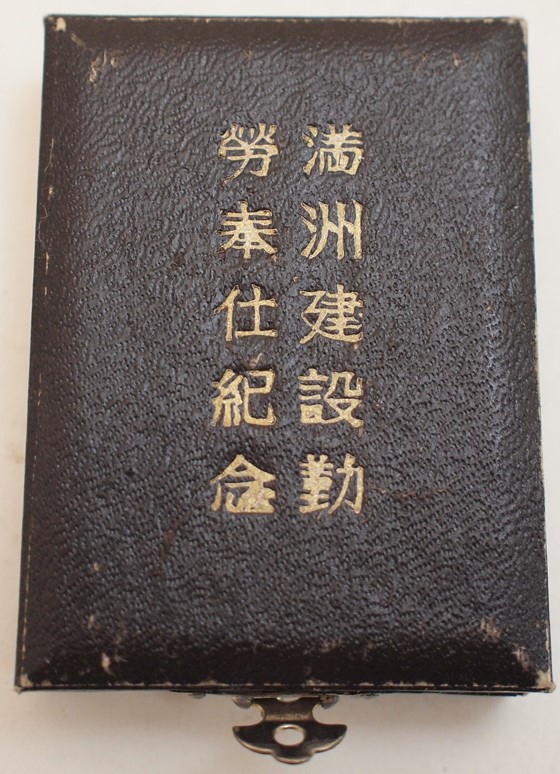 満洲建設勤
勞奉仕紀念